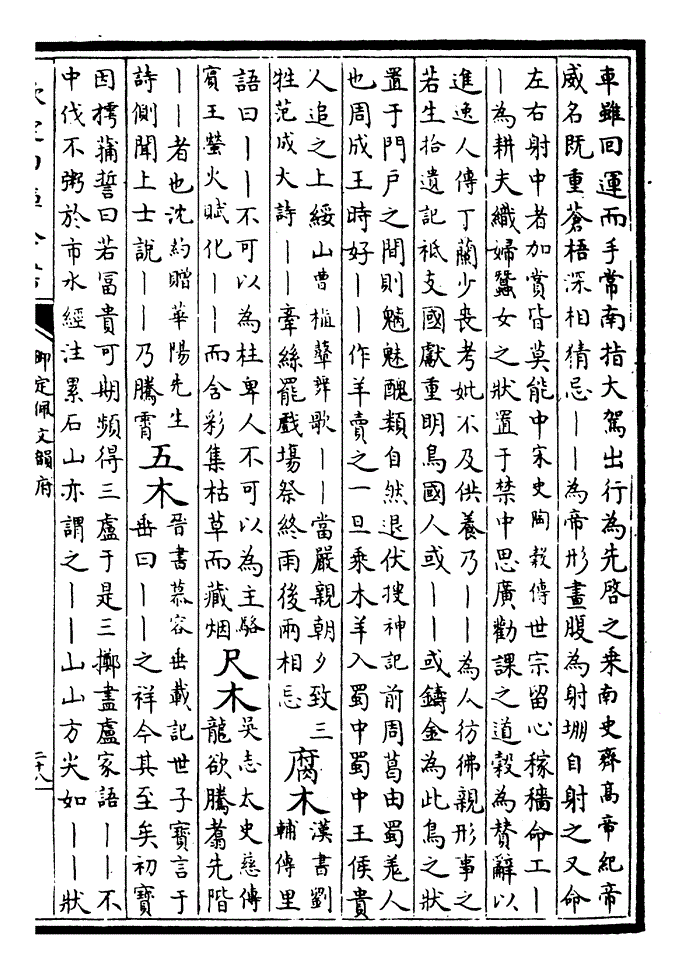 車雖回運而手常南指大駕出行為先啓之乘南史齊髙帝紀帝
威名既重蒼梧深相猜忌丨丨為帝形畫腹為射堋自射之又命
左右射中者加賞皆莫能中宋史陶糓傳世宗留心稼穡命工丨
丨為耕夫織婦蠶女之狀置于禁中思廣勸課之道穀為賛辭以
進逸人傳丁蘭少喪考妣不及供養乃丨丨為人彷彿親形事之
若生拾遺記祗支國獻重明鳥國人或丨丨或鑄金為此鳥之狀
置于門户之間則魑魅醜類自然退伏搜神記前周葛由蜀羗人
也周成王時好丨丨作羊賣之一旦乘木羊入蜀中蜀中王侯貴
人追之上綏山曹植鼙舞歌丨丨當嚴親朝夕致三
牲范成大詩丨丨牽絲罷戲塲祭終雨後兩相忘
腐木
漢書劉
輔傳里
語曰丨丨不可以為柱卑人不可以為主駱
賓王螢火賦化丨丨而含彩集枯草而藏烟
尺木
吳志太史慈傳
龍欲騰翥先階
丨丨者也沈約贈華陽先生
詩側聞上士說丨丨乃騰霄
五木
晉書慕容垂載記世子寶言于
垂曰丨丨之祥今其至矣初寶
因摴蒱誓曰若冨貴可期頻得三盧于是三擲盡盧家語丨丨不
中伐不粥於市水經注累石山亦謂之丨丨山山方尖如丨丨狀
御定佩文韻府